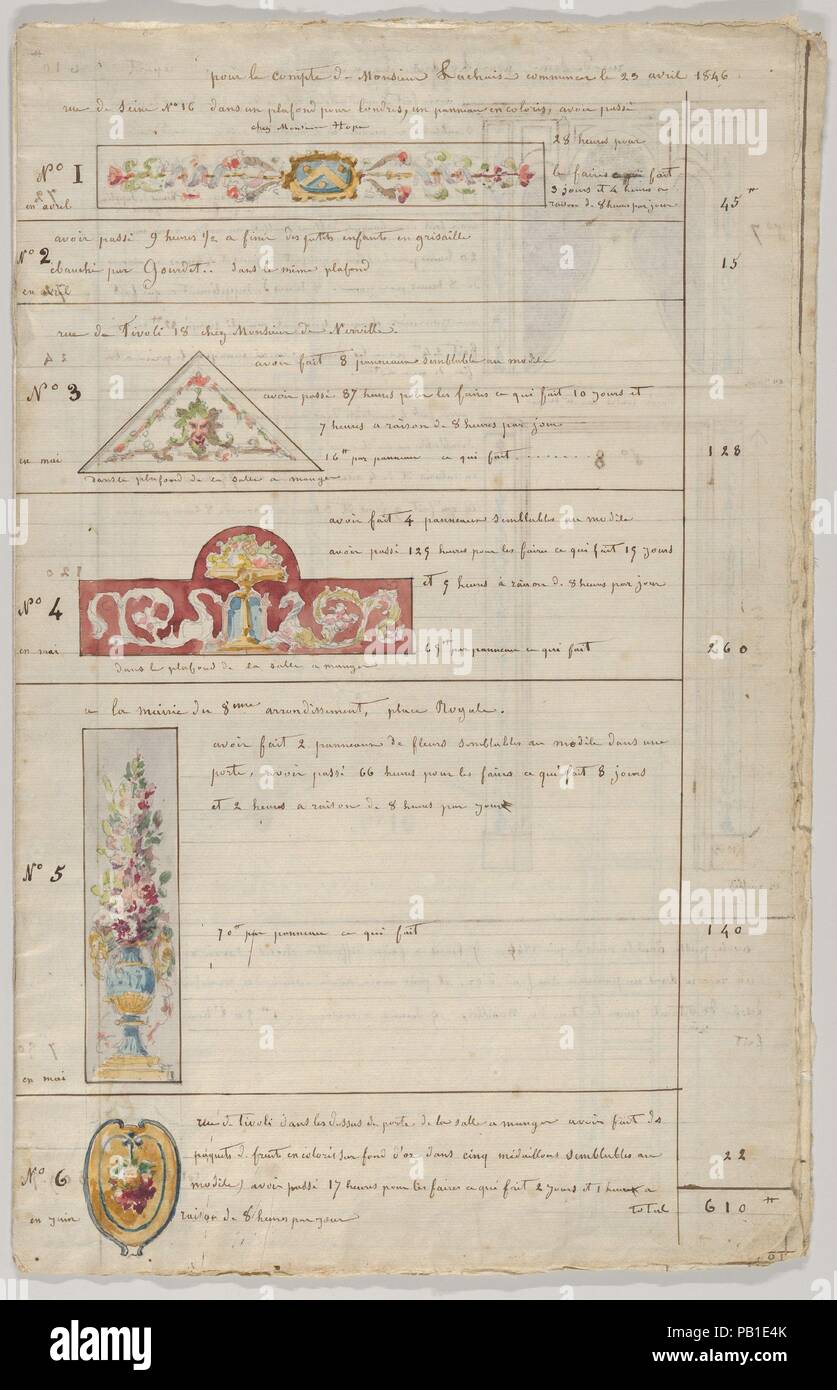 pour le compte de Monsieur Lachaise commencer le 23 avril 1846
rue de Seine No 16 dans un plafond pour londres, un panneau en coloris, avoir passé
chez Monsieur Hope
28 heures pour
No 1
les faires ce qui fait
3 jours et 4 heures a
raison de 8 heures par jour
45
en avril
avoir passé 9 heures 1/2 a finir des petits enfants en grisaille
No 2
ebauché par Gourdet.. dans le même plafond
15
en avril
rue de Tivoli 18 chez Monsieur de Nerville.
avoir fait 8 panneaux semblable au modèle
No 3
avoir passé 87 heures pour les faires ce qui fait 10 jours et
7 heures a raison de 8 heures par jour
en mai
16 par panneau ce qui fait ........
128
dans le plafond de la salle a manger
avoir fait 4 panneaux semblables au modèle
avoir passé 125 heures pour les faire ce qui fait 15 jours
et 5 heures à raison de 8 heures par jour
No 4
en mai
65 par panneau ce qui fait
260
dans le plafond de la salle a manger
a la mairie du 8me arrondissement, place Royale.
avoir fait 2 panneaux de fleurs semblables au modèle dans une
porte, avoir passé 66 heures pour les faires ce qui fait 8 jours
et 2 heures a raison de 8 heures par jour
No 5
70 par panneau ce qui fait
140
en mai
rue de tivoli dans les dessus de porte de la salle a manger avoir fait des
paquets de fruits en coloris sur fond d'or dans cinq médaillons semblables au
22
No 6
modèle, avoir passé 17 heures pour les faires ce qui fait 2 jours et 1 heure a
total
610
en juin
raison de 8 heures par jour
alamy
alamy
alamy
Image ID: PB1E4K
www.alamy.com